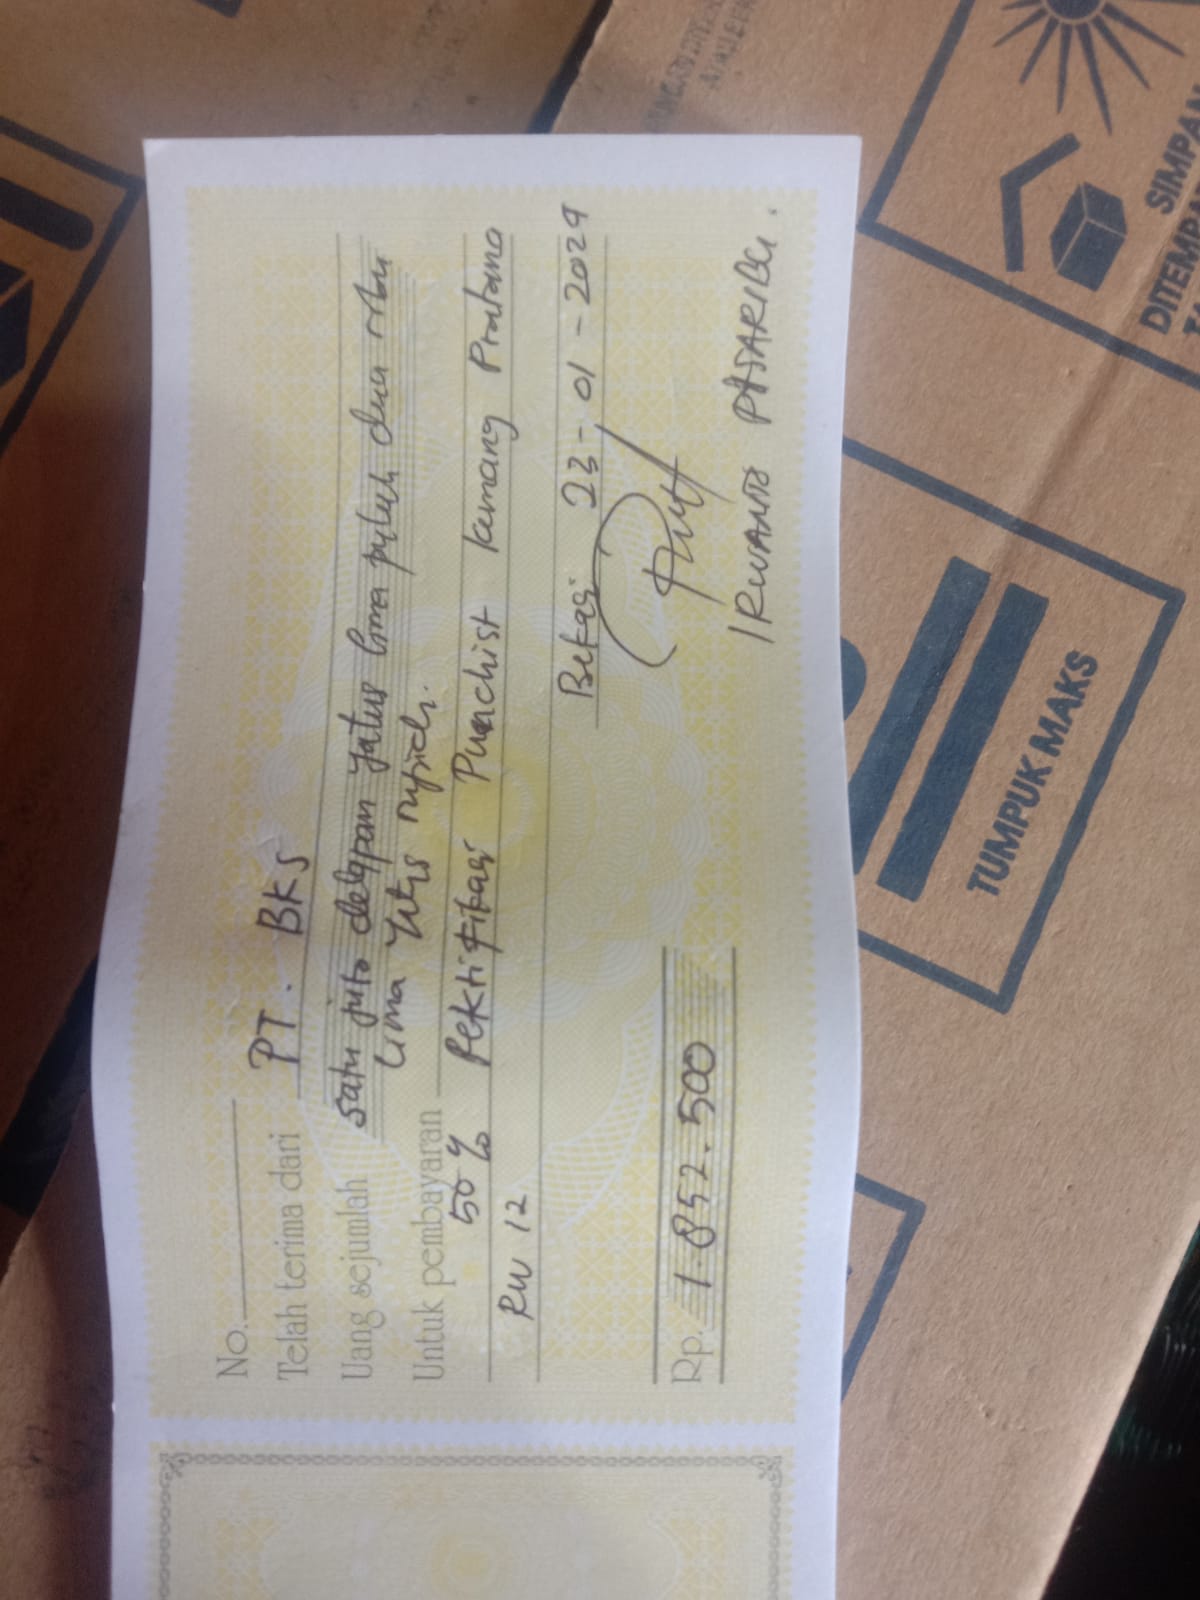 No.
Telah terima dari PT. BKS
Uang sejumlah satu juta delapan ratus lima puluh dua ribu
lima ratus rupiah.
Untuk pembayaran
50% Rektifikasi Punchist kemang Pratama
RW 12
Bekasi 23-01-2024
Rp. 1.852.500
IRWANTO PASARIBU.
SIMPAN
DITEMPA
TUMPUK MAKS